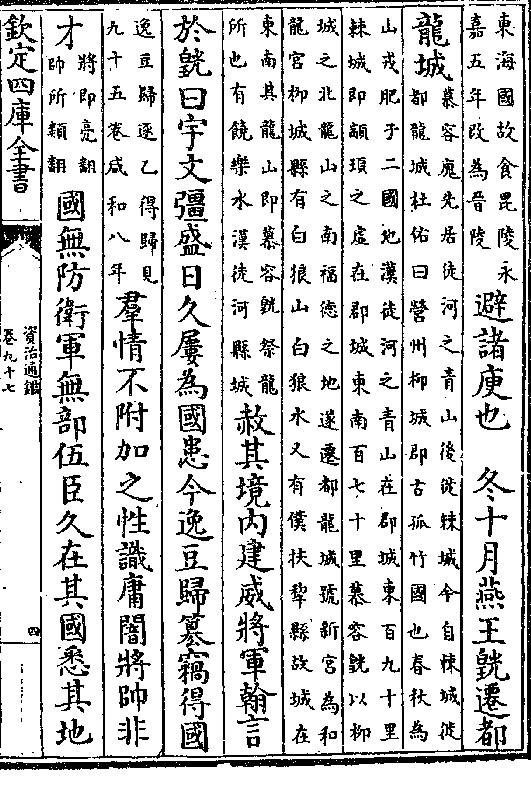 東海國故食毘陵永
嘉五年改為晉陵
避諸庾也 冬十月燕王皝遷都
龍城
慕容廆先居徒河之青山後徙棘城今自棘城徙
都龍城杜佑曰營州柳城郡古孤竹國也春秋為
山戎肥子二國地漢徒河之青山在郡城東百九十里
棘城即顓頊之虛在郡城東南百七十里慕容皝以柳
城之北龍山之南福德之地遂遷都龍城號新宮為和
龍宮柳城縣有白狼山白狼水又有僕扶犂縣故城在
東南其龍山即慕容皝祭龍
所也有饒樂水漢徒河縣城
赦其境内建威將軍翰言
於皝曰宇文彊盛日久屢為國患今逸豆歸簒竊得國
逸豆歸逐乙得歸見
九十五卷咸和八年
羣情不附加之性識庸闇將帥非
才
將即亮翻
帥所類翻
國無防衛軍無部伍臣久在其國悉其地
欽定四庫全書
資治通鑑
卷九十七
四